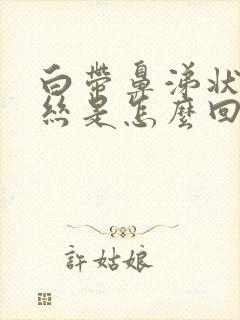 白帶鼻涕狀
絲是怎麼回
許姑娘